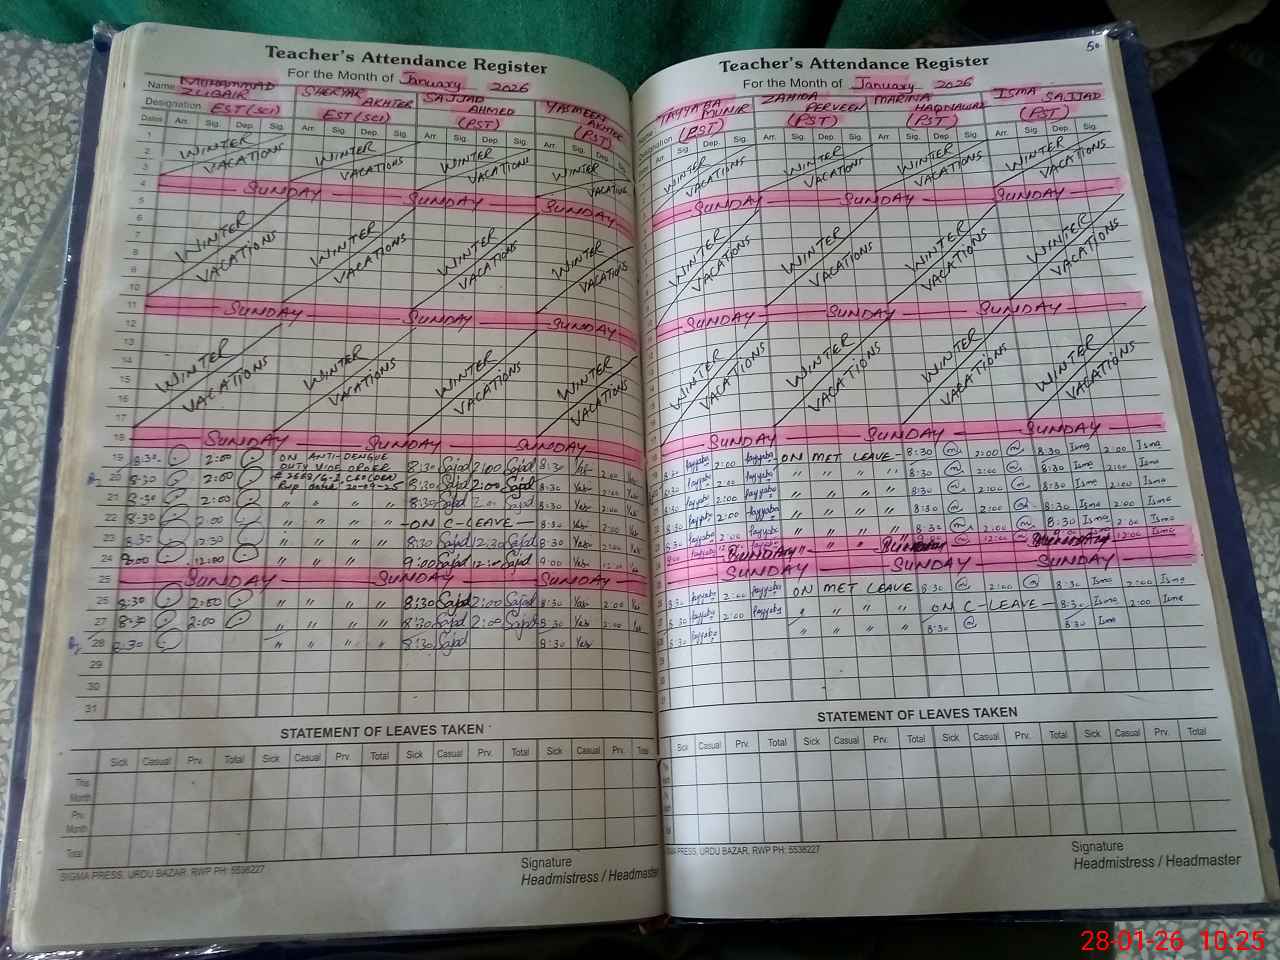 Teacher's Attendance Register
For the Month of January 2026
Name MUHAMMAD ZUBAIR SHERYAR AKHTER SAJJAD AHMED YASMEEN AKHTER
Designation EST(SCI) EST(SCI) (PST) (PST)
Dates Arr. Sig. Dep. Sig. Arr. Sig. Dep. Sig. Arr. Sig. Dep. Sig. Arr. Sig. Dep. Sig.
1
2 WINTER WINTER WINTER WINTER
3 VACATIONS VACATIONS VACATIONS VACATIONS
4 SUNDAY SUNDAY SUNDAY
5
6
7 WINTER WINTER WINTER WINTER
8 VACATIONS VACATIONS VACATIONS VACATIONS
9
10
11 SUNDAY SUNDAY SUNDAY
12
13
14 WINTER WINTER WINTER WINTER
15 VACATIONS VACATIONS VACATIONS VACATIONS
16
17
18 SUNDAY SUNDAY SUNDAY
19 8:30 2:00 ON ANTI-DENGUE 8:30 Sajad 2:00 Sajad 8:30 Yas
20 8:30 2:00 DUTY VIDE ORDER 8:30 Sajad 2:00 Sajad 8:30 Yas 2:00 Yas
21 8:30 2:00 " " " " 8:30 Sajad 2:00 Sajad 8:30 Yas 2:00 Yas
22 8:30 2:00 " " " " ON C-LEAVE 8:30 Yas 2:00 Yas
23 8:30 12:30 " " " " 8:30 Sajad 12:30 Sajad 8:30 Yas
24 9:00 12:00 " " " " 9:00 Sajad 12:00 Sajad 9:00 Yas
25 SUNDAY SUNDAY SUNDAY
26 8:30 2:00 " " " " 8:30 Sajad 2:00 Sajad 8:30 Yas 2:00 Yas
27 8:30 2:00 " " " " 8:30 Sajad 2:00 Sajad 8:30 Yas 2:00 Yas
28 8:30 " " " " 8:30 Sajad 8:30 Yas
29
30
31
STATEMENT OF LEAVES TAKEN
Sick Casual Prv. Total Sick Casual Prv. Total Sick Casual Prv. Total Sick Casual Prv. Total
This Month
Prv. Month
Total
SIGMA PRESS, URDU BAZAR, RWP PH: 5536227
Signature
Headmistress / Headmaster
50
Teacher's Attendance Register
For the Month of January 2026
TAYYABA MUNIR ZAHIDA PERVEEN MARINA HAQNAWAZ ISMA SAJJAD
Designation (PST) (PST) (PST) (PST)
Arr. Sig. Dep. Sig. Arr. Sig. Dep. Sig. Arr. Sig. Dep. Sig. Arr. Sig. Dep. Sig.
WINTER WINTER WINTER WINTER
VACATIONS VACATIONS VACATIONS VACATIONS
SUNDAY SUNDAY SUNDAY
WINTER WINTER WINTER WINTER
VACATIONS VACATIONS VACATIONS VACATIONS
SUNDAY SUNDAY SUNDAY
WINTER WINTER WINTER WINTER
VACATIONS VACATIONS VACATIONS VACATIONS
SUNDAY SUNDAY SUNDAY
8:30 Tayyaba 2:00 Tayyaba ON MET LEAVE 8:30 2:00 8:30 Isma 2:00 Isma
8:30 Tayyaba 2:00 Tayyaba " " " " 8:30 2:00 8:30 Isma 2:00 Isma
8:30 Tayyaba 2:00 Tayyaba " " " " 8:30 2:00 8:30 Isma 2:00 Isma
8:30 Tayyaba 2:00 Tayyaba " " " " 8:30 2:00 8:30 Isma 2:00 Isma
8:30 Tayyaba Tayyaba " " " " 8:30 8:30 Isma Isma
9:00 Tayyaba 12:00 Isma
SUNDAY SUNDAY SUNDAY
8:30 Tayyaba 2:00 Tayyaba ON MET LEAVE 8:30 2:00 8:30 Isma 2:00 Isma
8:30 Tayyaba 2:00 Tayyaba " " " " ON C-LEAVE 8:30 Isma 2:00 Isma
8:30 Tayyaba " " " " 8:30 8:30 Isma
STATEMENT OF LEAVES TAKEN
Sick Casual Prv. Total Sick Casual Prv. Total Sick Casual Prv. Total Sick Casual Prv. Total
PRESS, URDU BAZAR, RWP PH: 5536227
Signature
Headmistress / Headmaster
28-01-26 10:25